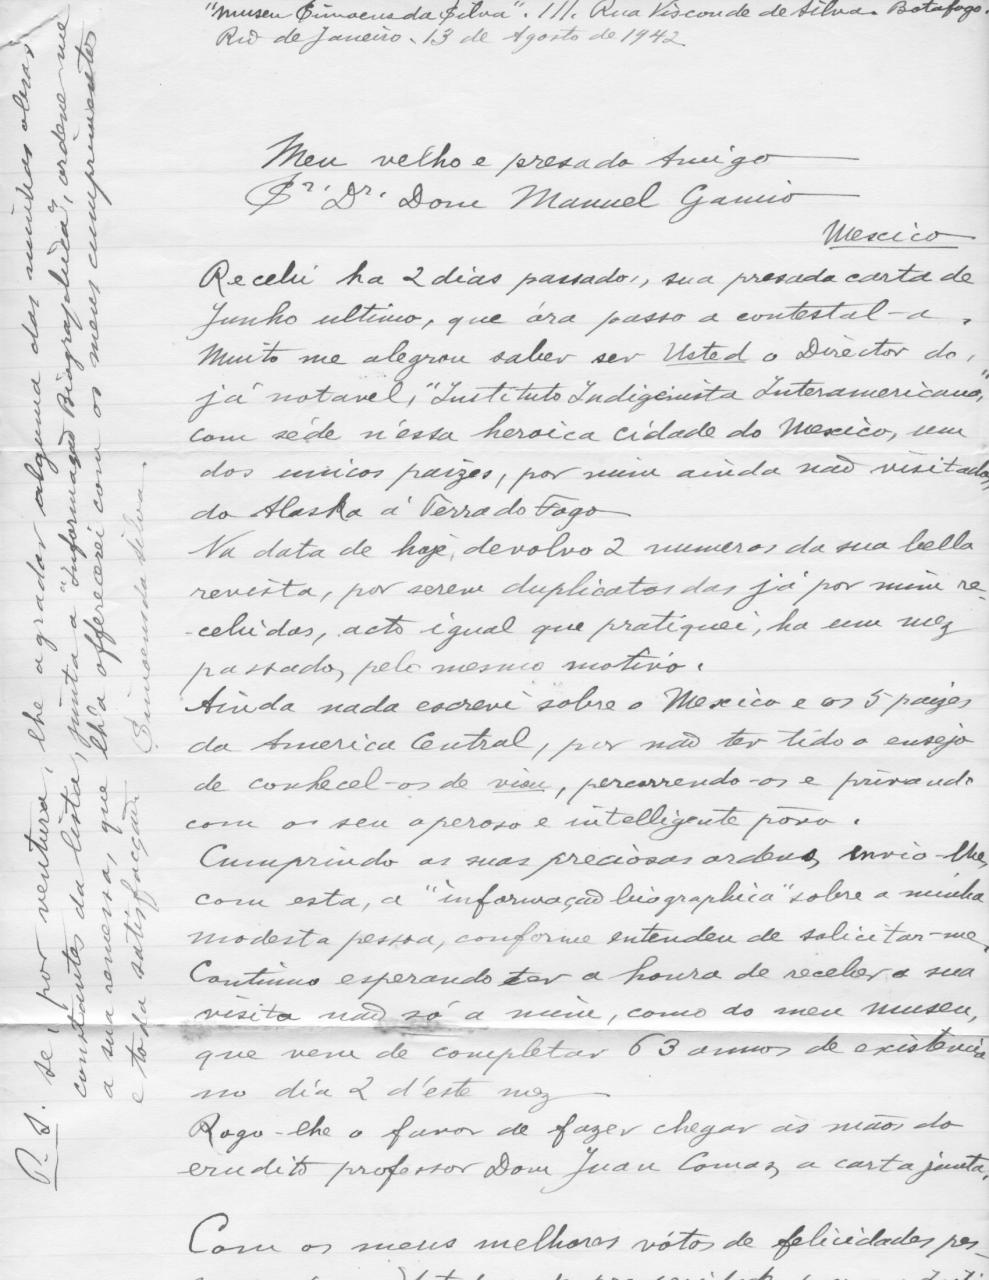 "Museu Simoens da Silva". 111. Rua Visconde de Silva. Botafogo.
Rio de Janeiro. 13 de Agosto de 1942
Meu velho e presado Amigo
Sr. Dr. Dom Manuel Gamio
Mexico
Recebi ha 2 dias passados, sua presada carta de
Junho ultimo, que óra passo a contestal-a.
Muito me alegrou saber ser Usted o Director do,
já notavel, "Instituto Indigenista Interamericano,"
com séde n'essa heroica cidade do Mexico, um
dos unicos paizes, por mim ainda não visitados,
do Alaska á Terra do Fogo
Na data de hoje, devolvo 2 numeros da sua bella
revista, por serem duplicatas das já por mim re-
-cebidas, acto igual que pratiquei, ha um mez
passado, pelo mesmo motivo.
Ainda nada escrevi sobre o Mexico e os 5 paizes
da America Central, por não ter tido o ensejo
de conhecel-os de visu, percorrendo-os e privando
com os seu operoso e intelligente povo.
Cumprindo as suas preciosas ordens, envio-lhe,
com esta, a "informação biographica" sobre a minha
modesta pessoa, conforme entendeu de solicitar-me.
Continuo esperando ter a honra de receber a sua
visita não só a mim, como do meu museu,
que vem de completar 63 annos de existencia
no dia 2 d'este mez
Rogo-lhe o favor de fazer chegar às mãos do
erudito professor Dom Juan Comas, a carta junta.
Com os meus melhores vótos de felicidades pes-
P.S. Se, por ventura, lhe agradar alguma das minhas obras,
constantes da lista, junta a "Informação Biographica", ordene-me
a sua remessa, que lh'a offerecerei com os meus cumprimentos
e toda satisfacção Simoens da Silva